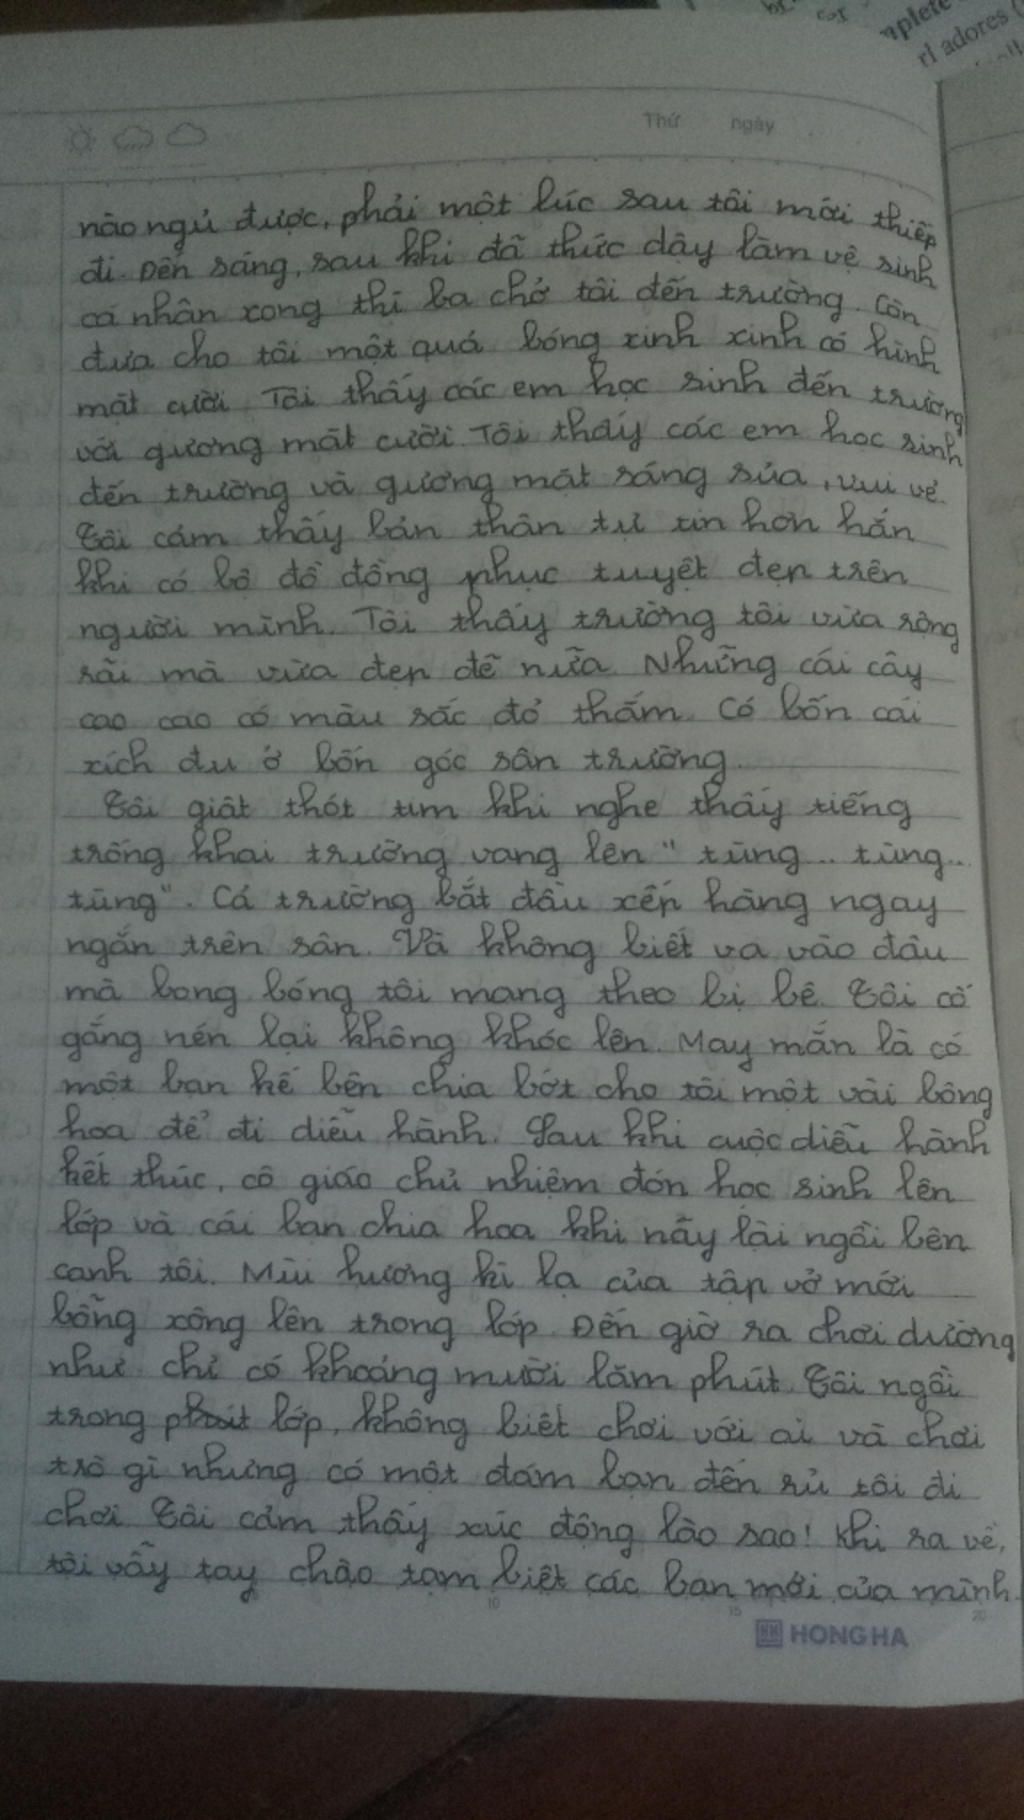 mplete
rl adores
Thứ ngày
nào ngủ được, phải một lúc sau tôi mới thiếp
đi. Đến sáng, sau khi đã thức dậy làm vệ sinh
cá nhân xong thì ba chở tôi đến trường. Còn
đưa cho tôi một quả bóng xinh xinh có hình
mặt cười. Tôi thấy các em học sinh đến trường
với gương mặt cười. Tôi thấy các em học sinh
đến trường và gương mặt sáng sủa, vui vẻ.
Tôi cảm thấy bản thân tự tin hơn hẳn
khi có bộ đồ đồng phục tuyệt đẹp trên
người mình. Tôi thấy trường tôi vừa rộng
rãi mà vừa đẹp đẽ nữa. Những cái cây
cao cao có màu sắc đỏ thắm. Có bốn cái
xích đu ở bốn góc sân trường.
Tôi giật thót tim khi nghe thấy tiếng
trống khai trường vang lên " tùng... tùng...
tùng". Cả trường bắt đầu xếp hàng ngay
ngắn trên sân. Và không biết va vào đâu
mà bong bóng tôi mang theo bị bể. Tôi cố
gắng nén lại không khóc lên. May mắn là có
một bạn kế bên chia bớt cho tôi một vài bông
hoa để đi diễu hành. Sau khi cuộc diễu hành
kết thúc, cô giáo chủ nhiệm đón học sinh lên
lớp và cái bạn chia hoa khi nãy lại ngồi bên
cạnh tôi. Mùi hương kì lạ của tập vở mới
bỗng xông lên trong lớp. Đến giờ ra chơi dường
như chỉ có khoảng mười lăm phút. Tôi ngồi
trong lớp, không biết chơi với ai và chơi
trò gì nhưng có một đám bạn đến rủ tôi đi
chơi. Tôi cảm thấy xúc động lào sao! Khi ra về,
tôi vẫy tay chào tạm biệt các bạn mới của mình.
10 15 20
HONG HA